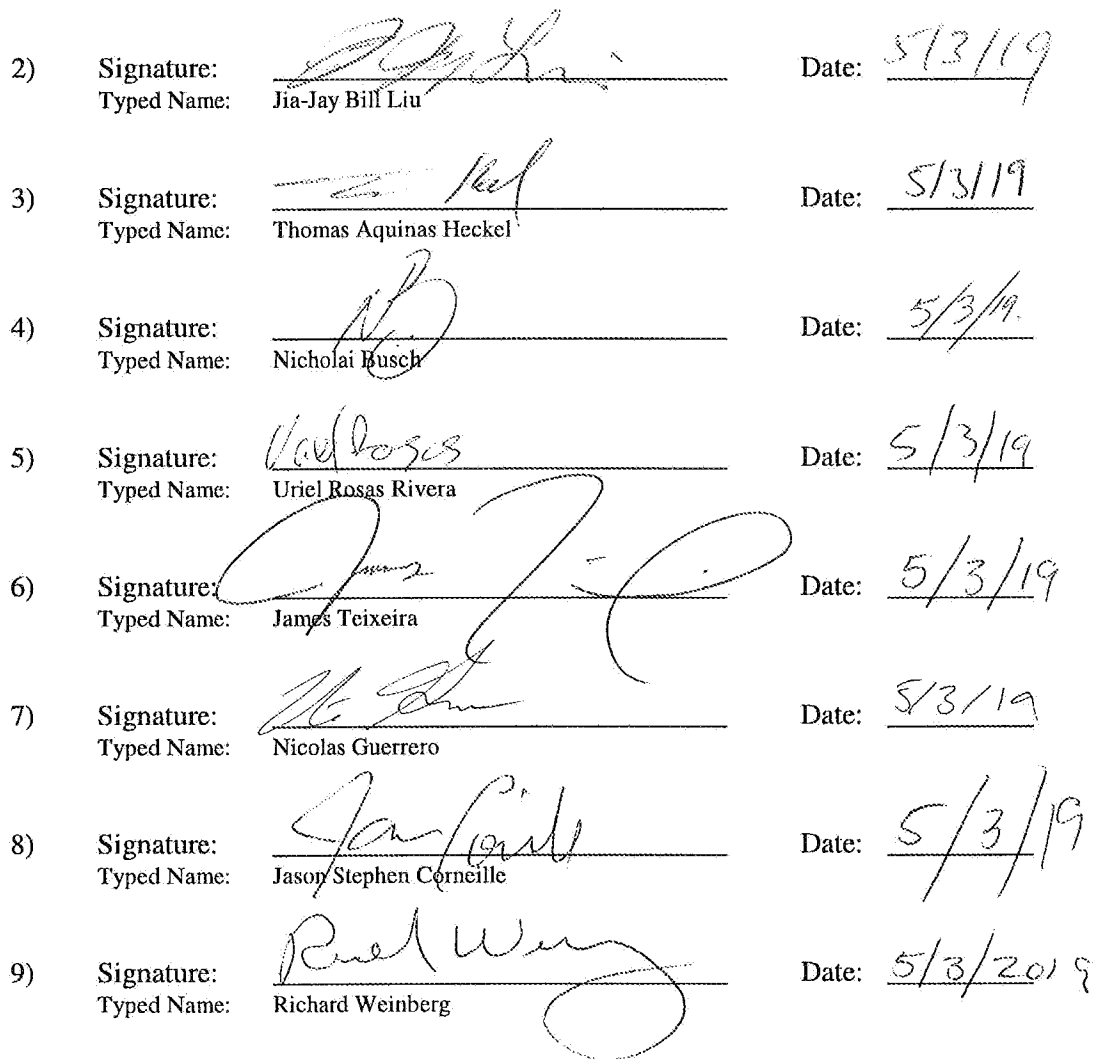 2) Signature: Date: 5/3/19
Typed Name: Jia-Jay Bill Liu
3) Signature: Date: 5/3/19
Typed Name: Thomas Aquinas Heckel
4) Signature: Date: 5/3/19.
Typed Name: Nicholai Busch
5) Signature: Rosas Date: 5/3/19
Typed Name: Uriel Rosas Rivera
6) Signature: Date: 5/3/19
Typed Name: James Teixeira
7) Signature: Date: 5/3/19
Typed Name: Nicolas Guerrero
8) Signature: Date: 5/3/19
Typed Name: Jason Stephen Corneille
9) Signature: Date: 5/3/2019
Typed Name: Richard Weinberg